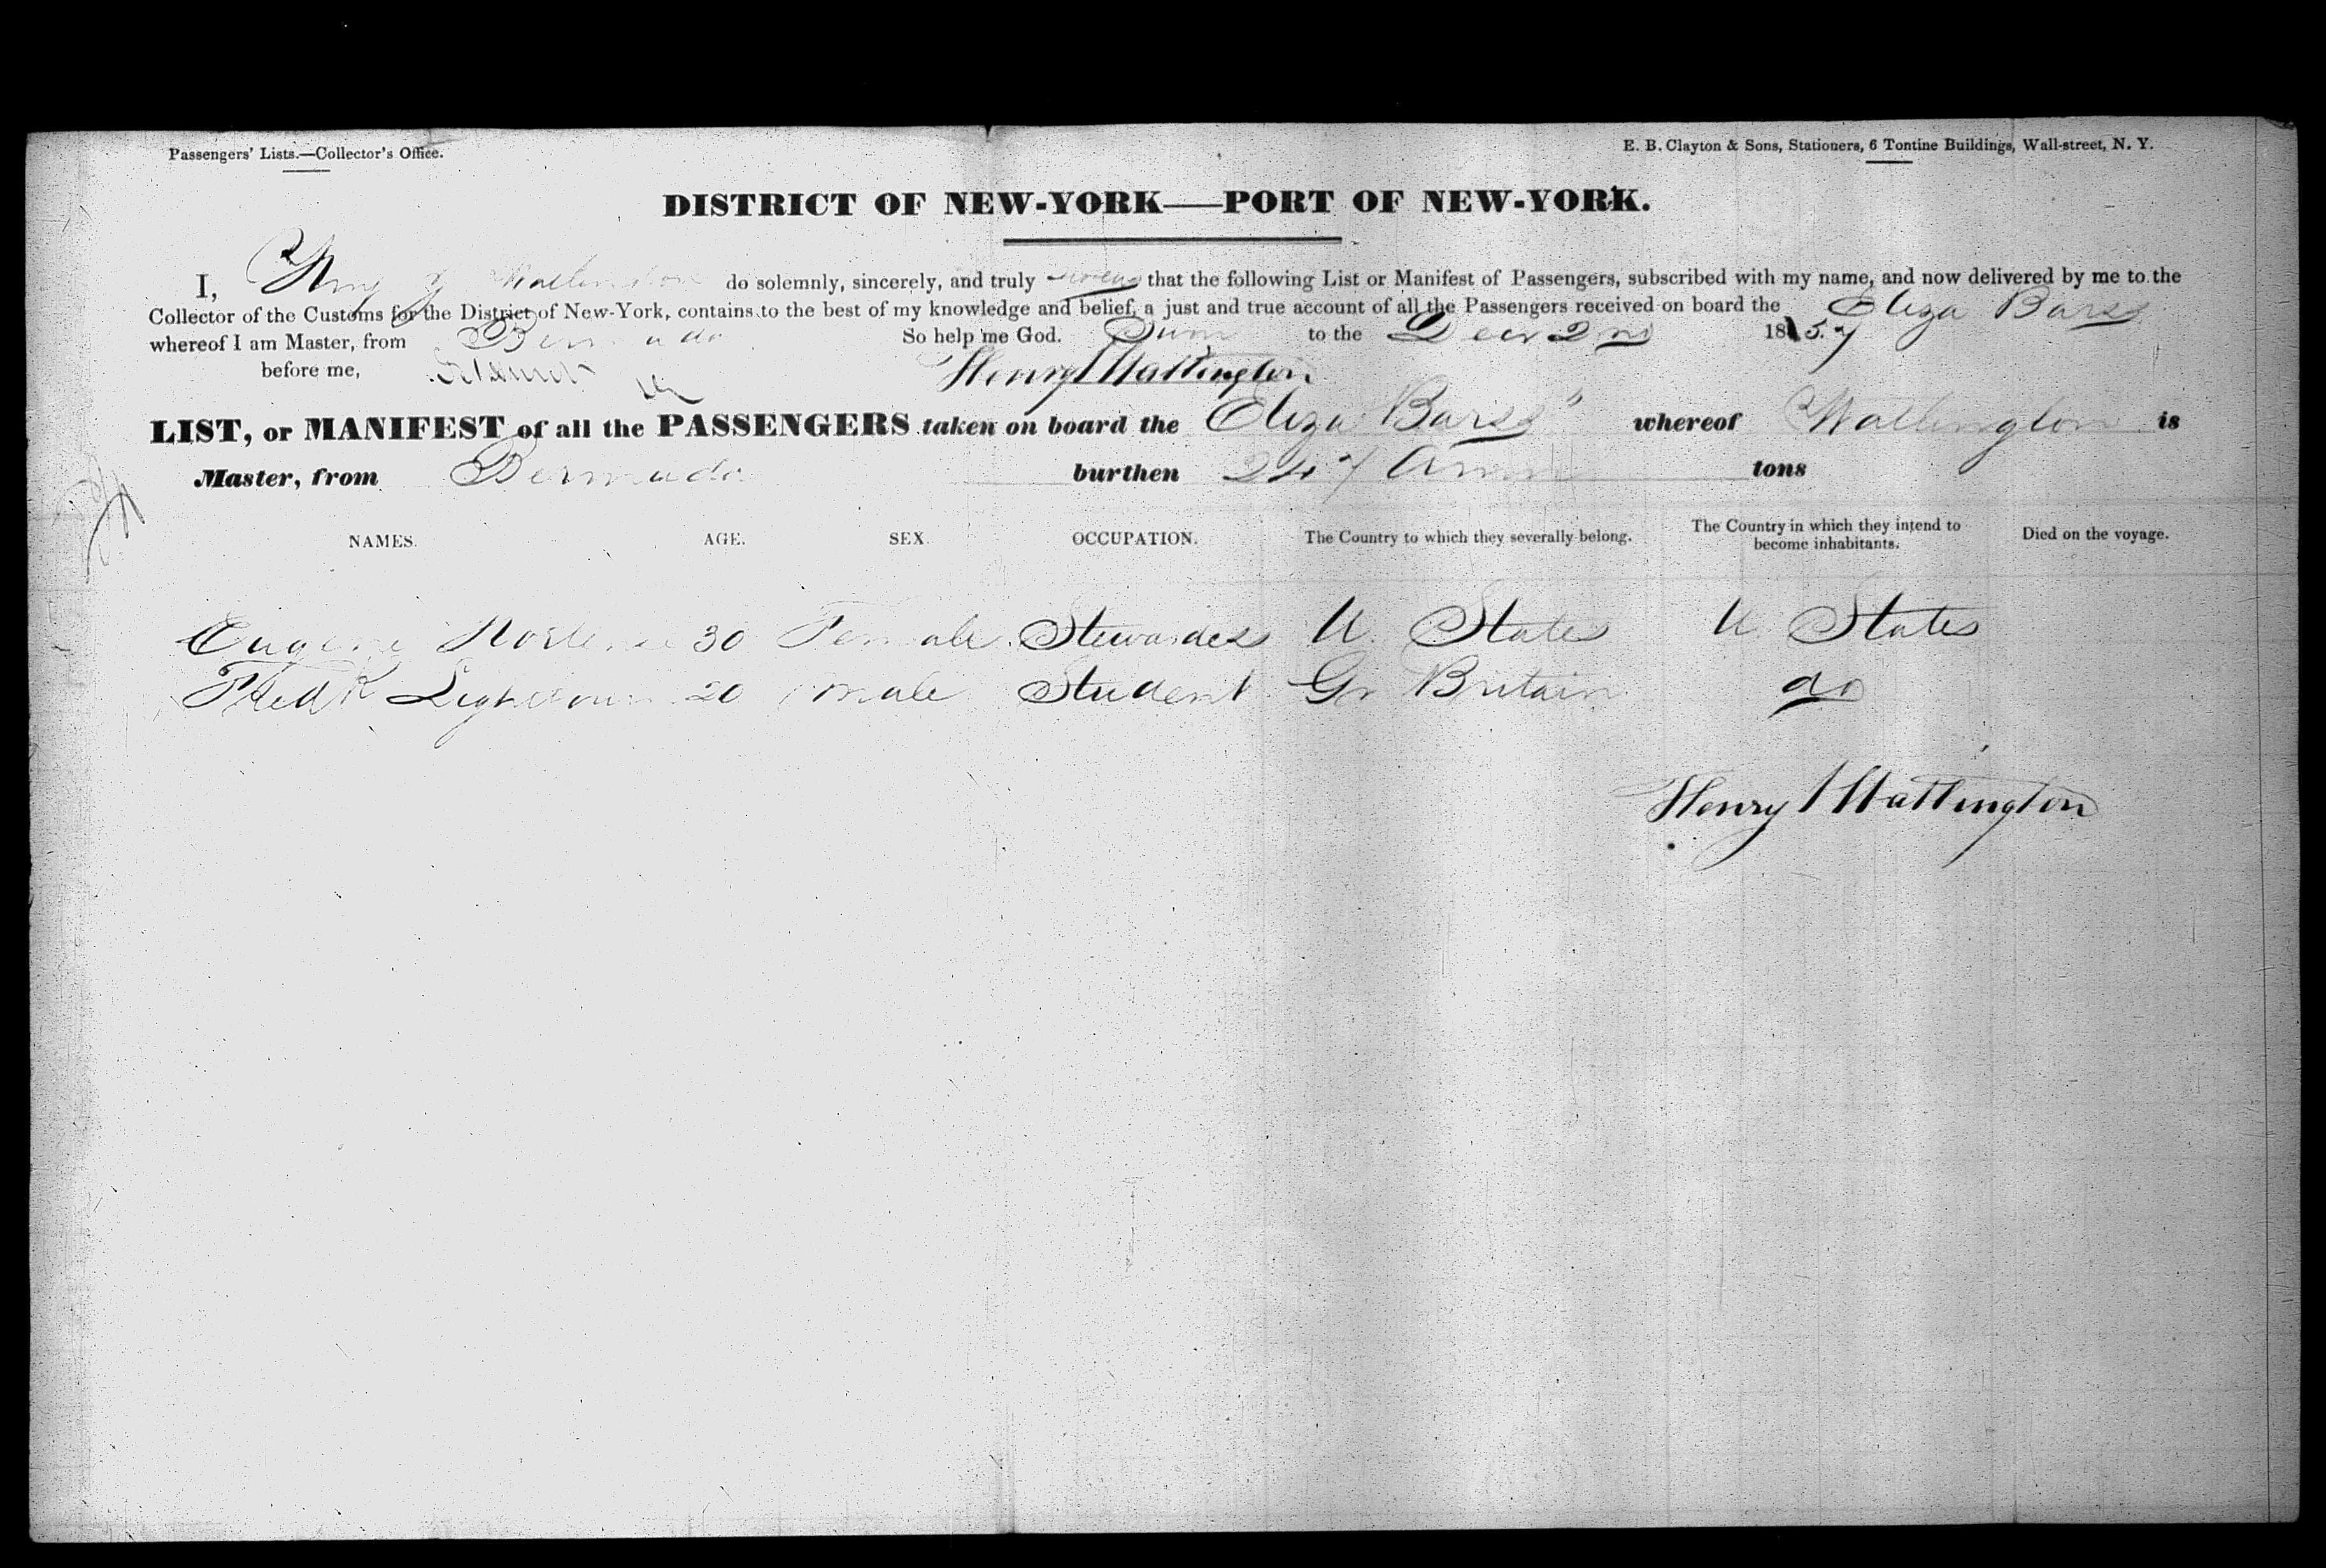 Passengers' Lists.—Collector's Office.
E. B. Clayton & Sons, Stationers, 6 Tontine Buildings, Wall-street, N. Y.
DISTRICT OF NEW-YORK—PORT OF NEW-YORK.
I, Watlington do solemnly, sincerely, and truly that the following List or Manifest of Passengers, subscribed with my name, and now delivered by me to the
Collector of the Customs for the District of New-York, contains to the best of my knowledge and belief, a just and true account of all the Passengers received on board the Eliza Barss
whereof I am Master, from Bermuda So help me God. to the Decr 2nd 1857
before me, Henry Watlington
LIST, or MANIFEST of all the PASSENGERS taken on board the Eliza Barss whereof Watlington is
Master, from Bermuda burthen 247 tons
NAMES. AGE. SEX. OCCUPATION. The Country to which they severally belong. The Country in which they intend to become inhabitants. Died on the voyage.
Eugene 30 Female Stewardess U. States U. States
Fredk Lightbourn 20 male Student Gr Britain do
Henry Watlington